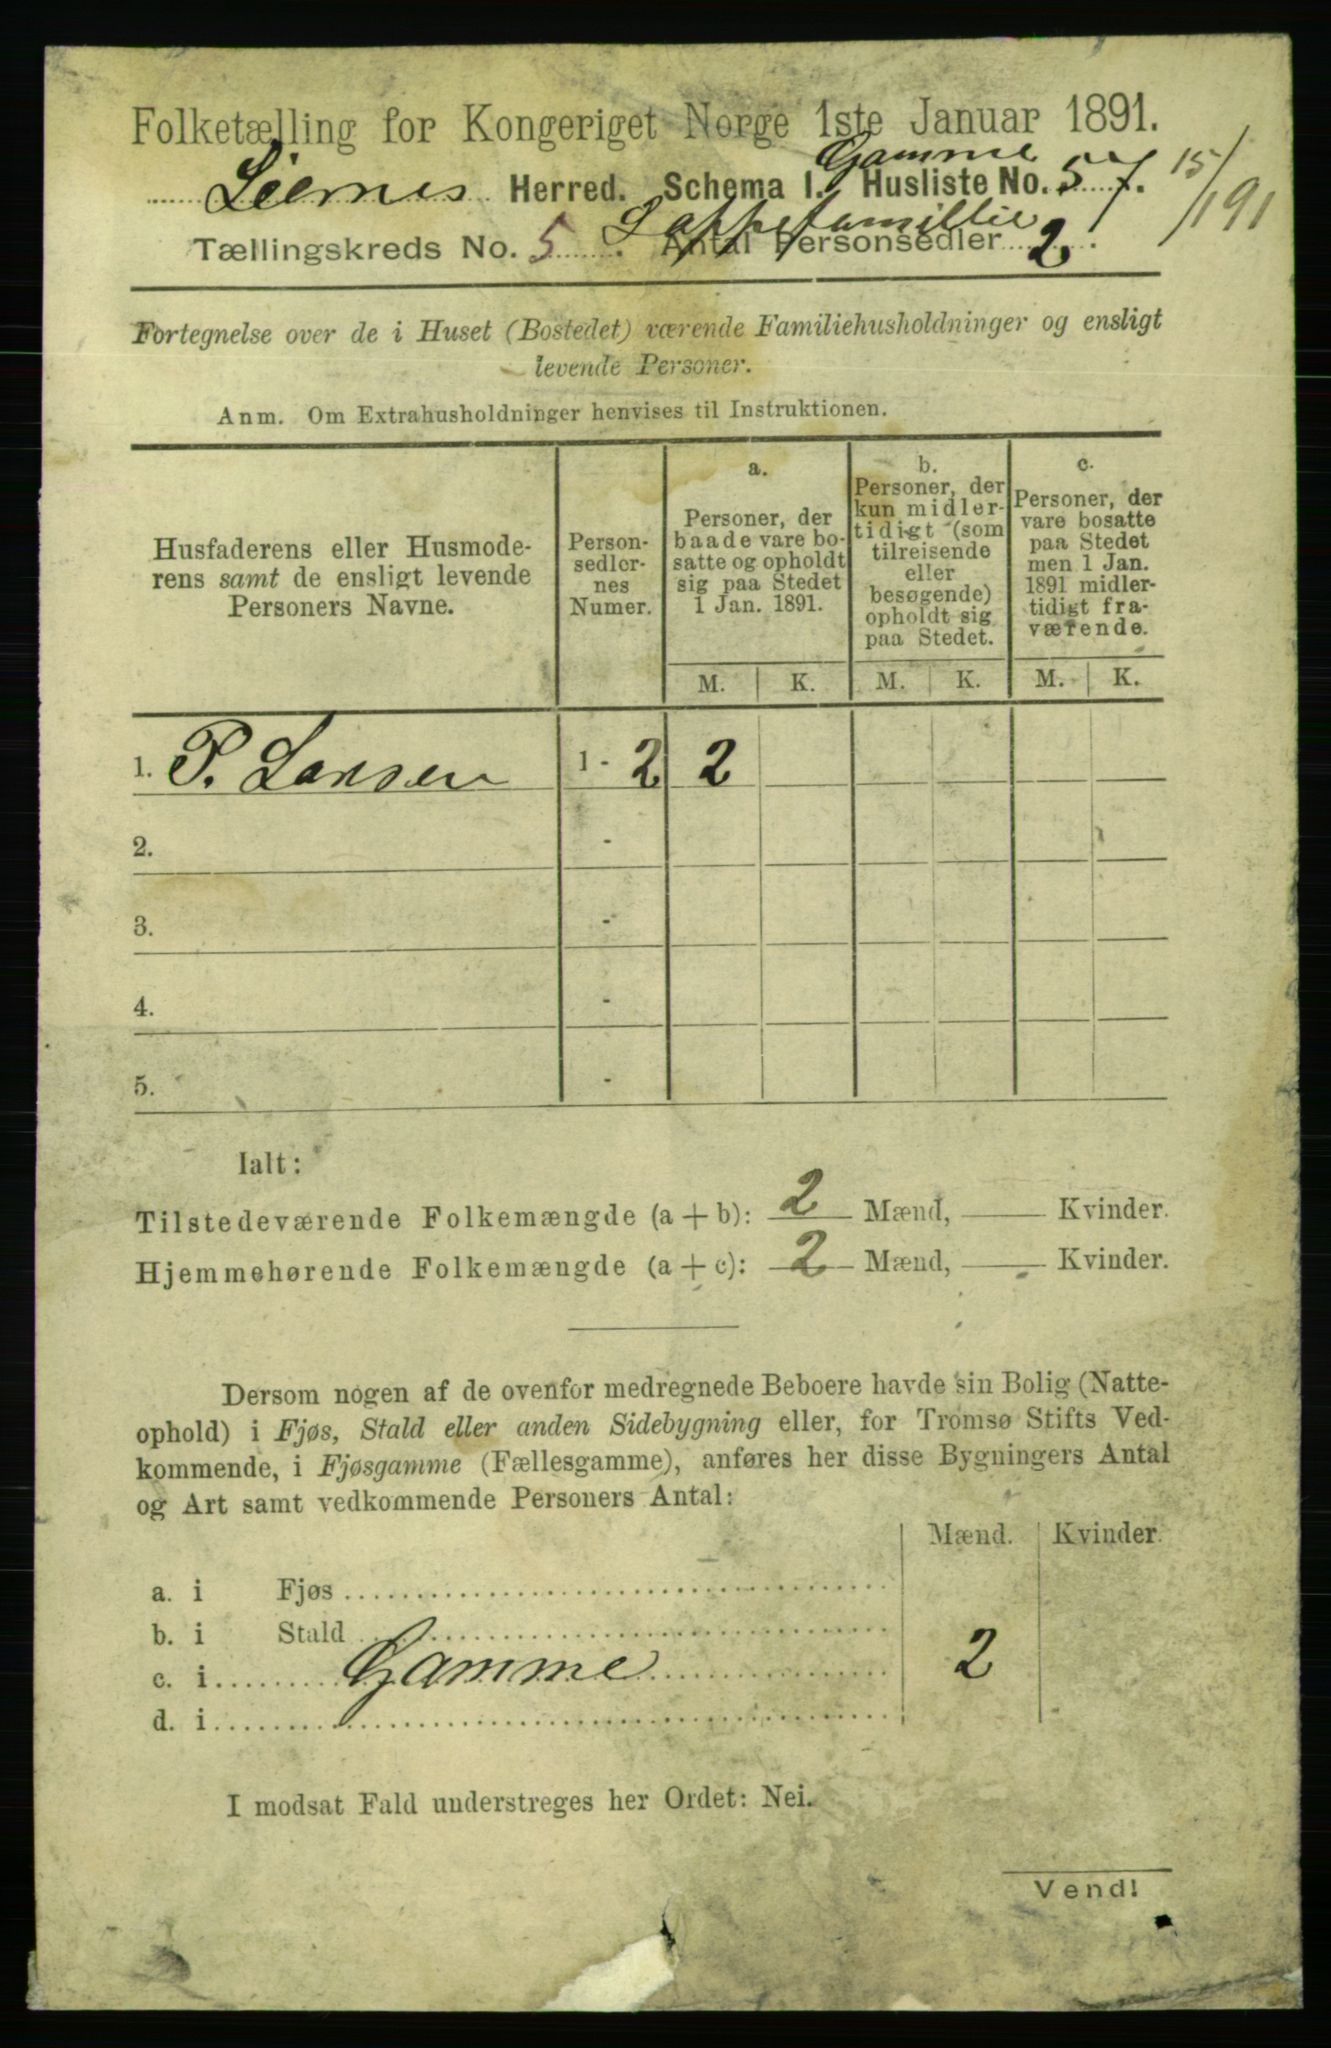 Folketælling for Kongeriget Norge 1ste Januar 1891.
Gamme
Liernes Herred. Schema 1. Husliste No. 57. 15/191
Lappefamillie
Tællingskreds No. 5. Antal Personsedler 2.
Fortegnelse over de i Huset (Bostedet) værende Familiehusholdninger og ensligt
levende Personer.
Anm. Om Extrahusholdninger henvises til Instruktionen.
Husfaderens eller Husmode-
rens samt de ensligt levende
Personers Navne.
Person-
sedler-
nes
Numer.
a.
Personer, der
baade vare bo-
satte og opholdt
sig paa Stedet
1 Jan. 1891.
b.
Personer, der
kun midler-
tidigt (som
tilreisende
eller
besøgende)
opholdt sig
paa Stedet.
c.
Personer, der
vare bosatte
paa Stedet
men 1 Jan.
1891 midler-
tidigt fra-
værende.
M. K. M. K. M. K.
1. P. Larsen 1 - 2 2
2. -
3. -
4. -
5. -
Ialt:
Tilstedeværende Folkemængde (a + b): 2 Mænd, Kvinder.
Hjemmehørende Folkemængde (a + c): 2 Mænd, Kvinder.
Dersom nogen af de ovenfor medregnede Beboere havde sin Bolig (Natte-
ophold) i Fjøs, Stald eller anden Sidebygning eller, for Tromsø Stifts Ved-
kommende, i Fjøsgamme (Fællesgamme), anføres her disse Bygningers Antal
og Art samt vedkommende Personers Antal:
Mænd. Kvinder.
a. i Fjøs
b. i Stald
c. i Gamme 2
d. i
I modsat Fald understreges her Ordet: Nei.
Vend!